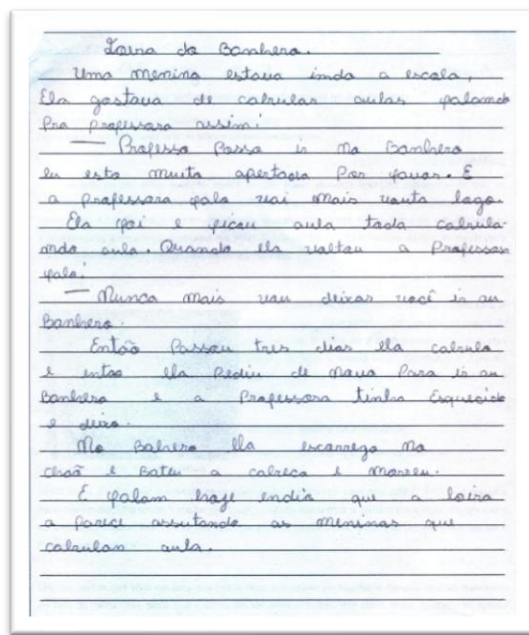 Loira do Banhero.
Uma menina estava indo a escola,
Ela gostava de cabular aulas falando
Pra professora assim:
— Professo Posso ir no Banhero
eu esto muita apertada Por favor. E
a professora falo vai mais vauta logo.
Ela foi e ficou aula toda cabula
ndo aula. Quando ela voltou a Professora
falo:
— Nunca mais vou deixar você ir au
Banhero.
Então Passou tres dias ela cabulo
e entao ela Pediu de novo Para ir au
Banhero e a Professora tinha Esquecido
e deixo.
No Banhero ela escorrego no
chaõ e Bateu a cabeça e morreu.
E falam hoje endia que a loira
a Parece assutando as meninas que
cabulan aula.